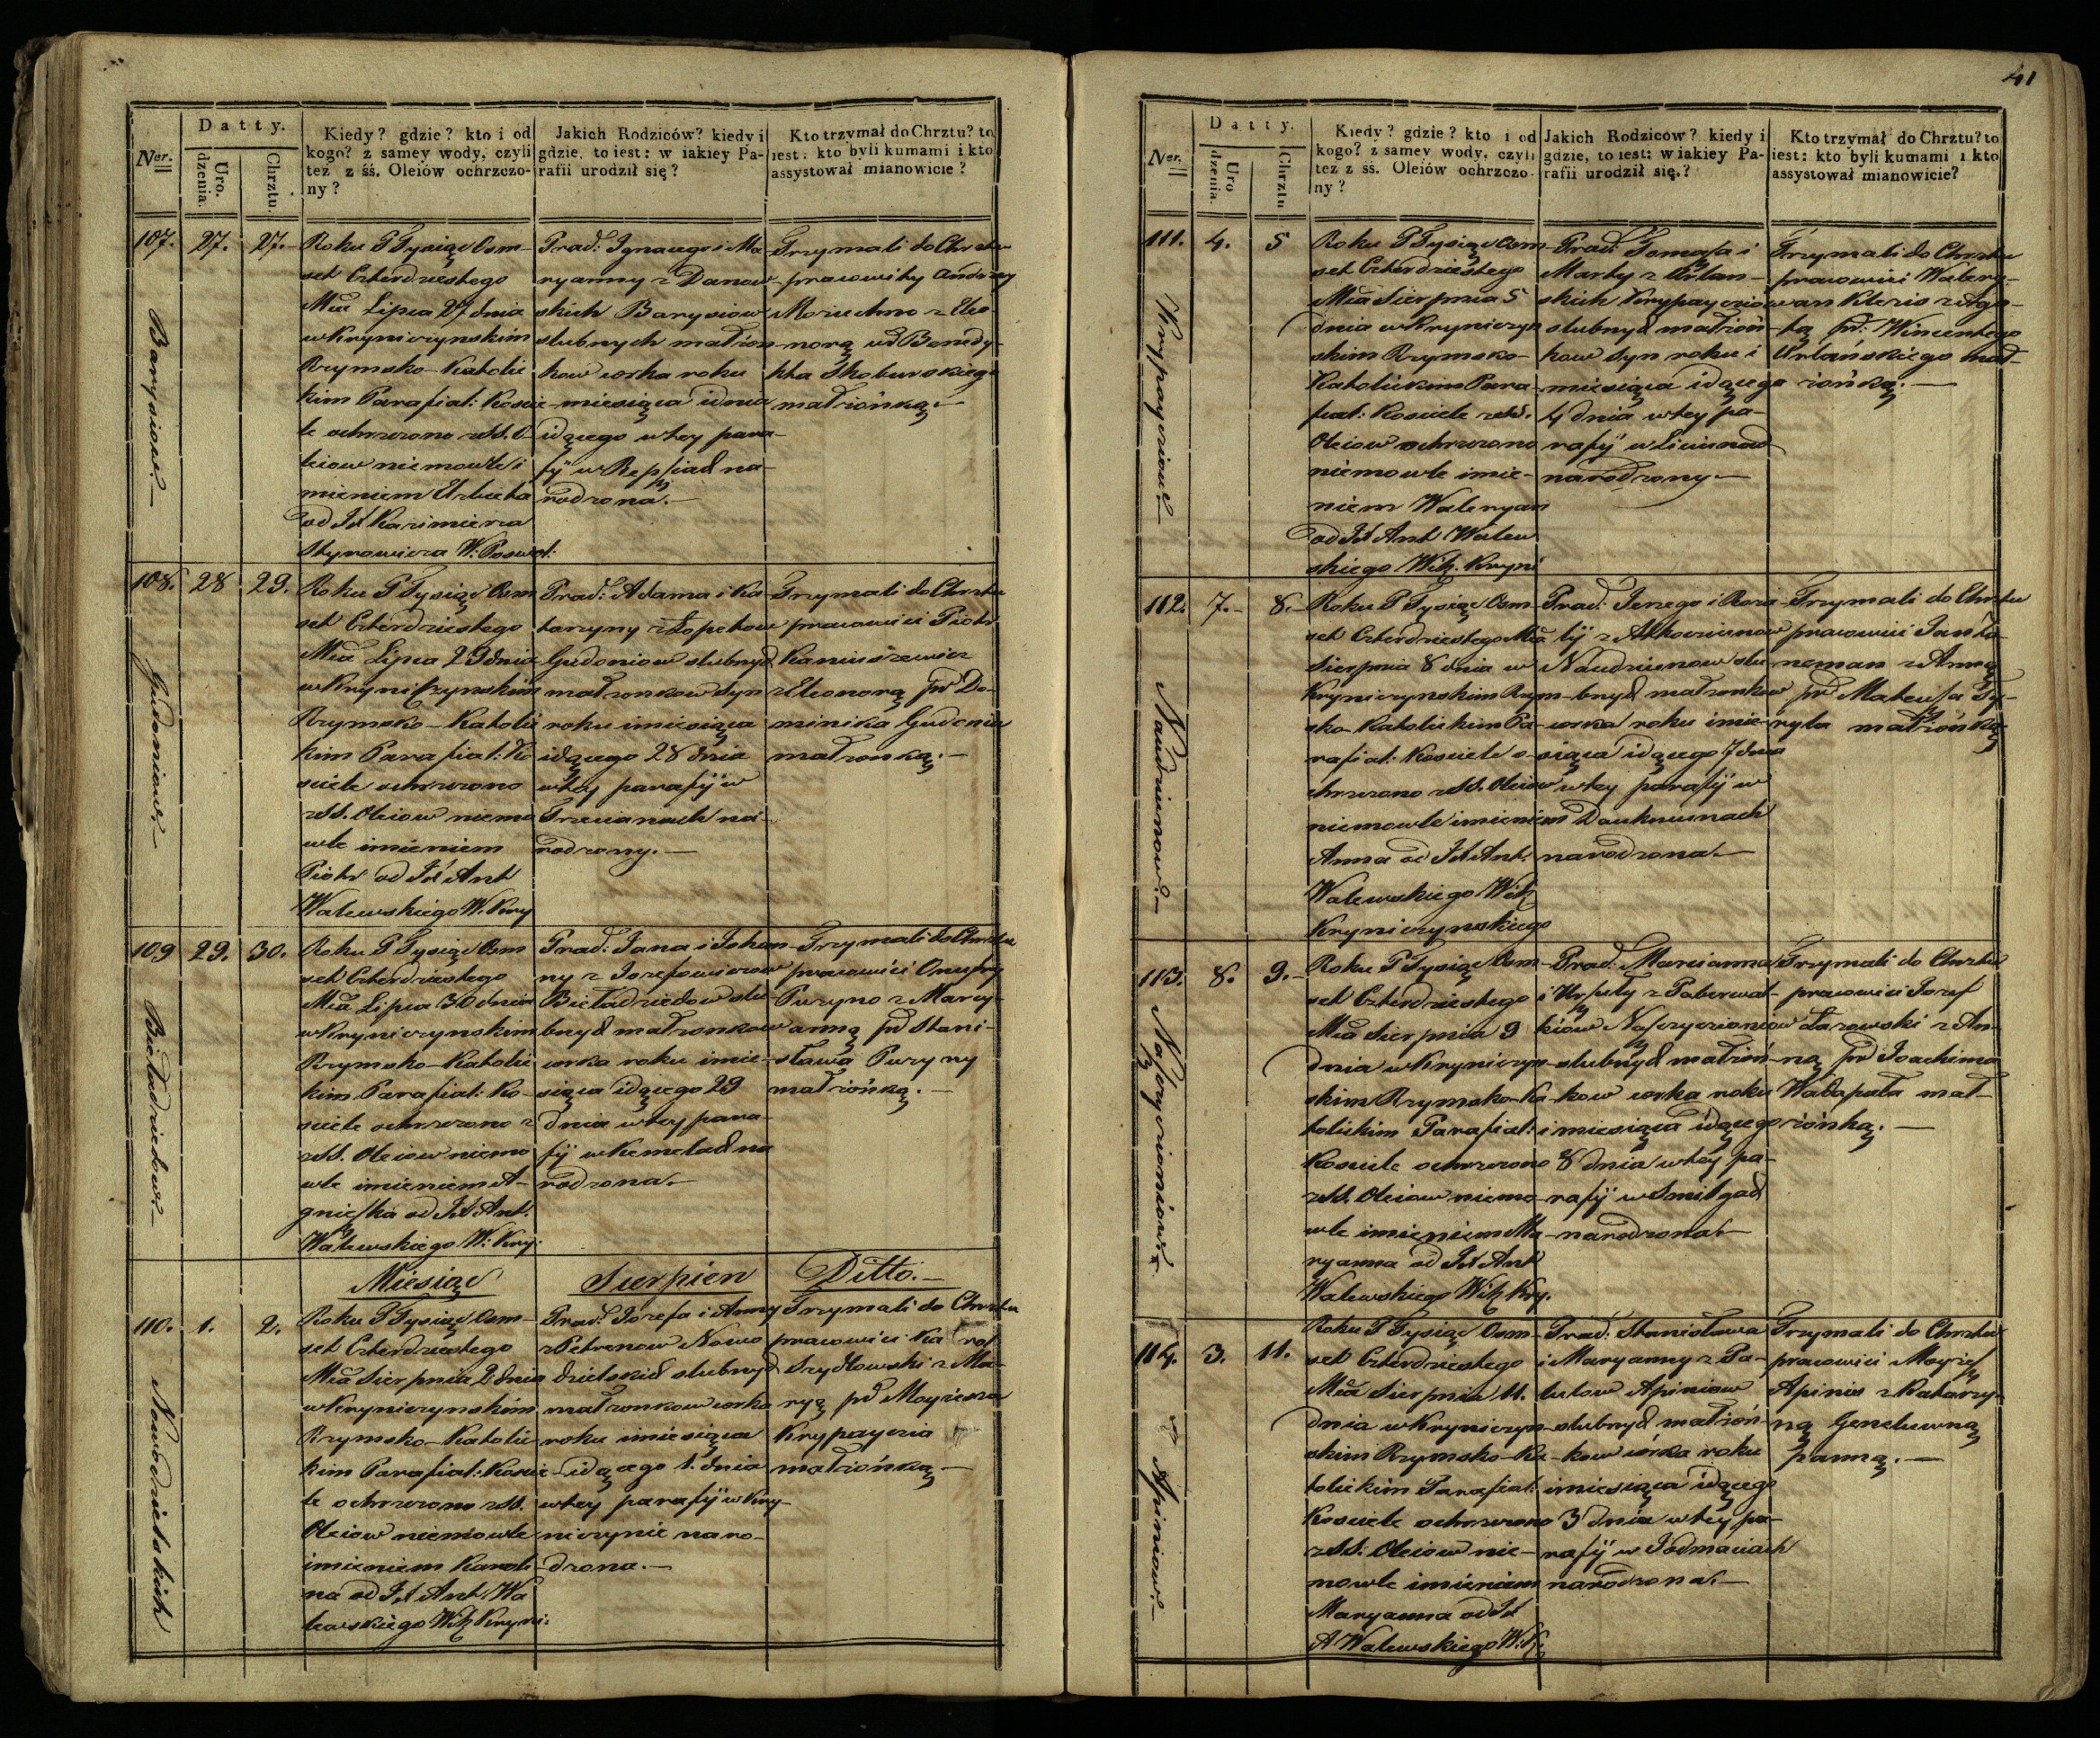 Ner.
Datty.
Uro.
dzenia.
Chrztu.
Kiedy? gdzie? kto i od
kogo? z samey wody, czyli
tez z śś. Oleiów ochrzczo-
ny?
Jakich Rodziców? kiedy i
gdzie, to iest: w iakiey Pa-
rafii urodził się?
Kto trzymał do Chrztu? to
iest: kto byli kumami i kto
assystował mianowicie?
107.
27.
27.
Barysiow.
Roku P Tysiąc Osm-
set Czterdziestego
Mca Lipca 27 dnia
w Kryniczynskim
Rzymsko-Katolic
kim Parafial: Koscie-
le ochrzczono z SS. O-
leiow niemowle i
mieniem Elzbieta
od Jd Kazimierza
W: Poswol:
Prac: Ignacego i Ma-
ryanny z Danow-
skich Barysiow
slubnych małżon-
kow corka roku
miesiąca i dnia
idącego w tey para-
fij w Repszach na-
rodzona.
Trzymali do Chrztu
pracowity Andrzey
z Eleo-
norą
małżonką.
108.
28
29.
Gudoniow.
Roku P Tysiąc Osm
set Czterdziestego
Mca Lipca 29 dnia
w Kryniczynskim
Rzymsko-Katolic
kim Parafial: Ko
sciele ochrzczono
z SS. Oleiow niemo
wle imieniem
Piotr od Jd Ant
Walewskiego W. Kry
Prac: Adama i Ka
tarzyny z Łopetow
Gudoniow slubnych
małżonkow Syn
roku i miesiąca
idącego 28 dnia
w tey parafij w
Trzcianach na-
rodzony.
Trzymali do Chrztu
pracowici Piotr
Kaniuszewicz
z Eleonorą pr Do-
minika Gudonia
małżonką.
109
29.
30.
Bieladziedow.
Roku P Tysiąc Osm
set Czterdziestego
Mca Lipca 30 dnia
w Kryniczynskim
Rzymsko-Katolic
kim Parafial: Ko-
sciele ochrzczono z
z SS. Oleiow niemo
wle imieniem A-
gnieszka od Jd Ant.
Walewskiego W: Kry:
Prac: Jana i Johan-
ny z Jozefowiczow
Bieladziedow slu-
bnych małżonkow
corka roku i mie-
siąca idącego 29
dnia w tey para-
fij w Kemelach na
rodzona.
Trzymali do Chrztu
pracowici Onufry
Puzyno z Mary-
anną pr Stani-
sława Puzyny
małżonką.
Miesiąc
Sierpien
Ditto.
110.
1.
2.
Nowodzielskich
Roku P Tysiąc Osm-
set Czterdziestego
Mca Sierpnia 2 dnia
w Kryniczynskim
Rzymsko-Katolic
kim Parafial: Koscie-
le ochrzczono z SS.
Oleiow niemowle
imieniem Karoli-
na od Jd Ant Wa
lewskiego Wik Kryni:
Prac: Jozefa i Anny
z Petrenow Nowo
dzielskich slubnych
małżonkow corka
roku i miesiąca
idącego 1. dnia
w tey parafij w Kry-
niczynie naro-
dzona.
Trzymali do Chrztu
pracowici
Szydłowski z Ma-
ryą pr Moyżesza
Krypaycia
małżonką
41
Ner.
Datty.
Uro
dzenia.
Chrztu
Kiedy? gdzie? kto i od
kogo? z samey wody, czyli
tez z śś. Oleiów ochrzczo-
ny?
Jakich Rodziców? kiedy i
gdzie, to iest: w iakiey Pa-
rafii urodził się.?
Kto trzymał do Chrztu? to
iest: kto byli kumami i kto
assystował mianowicie?
111.
4.
5
Krypayciow.
Roku P Tysiąc Osm
set Czterdziestego
Mca Sierpnia 5
dnia w Kryniczyn
skim Rzymsko-
Katolickim Para-
fial: Kosciele z SS.
Oleiow ochrzczono
niemowle imie-
niem Waleryan
od Jd Ant Walew
skiego Wik. Kryni
Prac: Tomasza i
Marty z Urban-
skich Krypayciow
slubnych małżon-
kow Syn roku i
miesiąca idącego
4 dnia w tey pa-
rafij w
narodzony.
Trzymali do Chrztu
pracowici Walery-
an
pr: Wincentego
Urbańskiego mał-
żonką.
112.
7.
8.
Naudziunow.
Roku P Tysiąc Osm-
set Czterdziestego Mca
Sierpnia 8 dnia w
Kryniczynskim Rzym-
sko Katolickim Pa-
rafial: Kosciele o-
chrzczono z SS. Oleiow
niemowle imieniem
Anna od Jd Ant.
Walewskiego Wik
Kryniczynskiego
Prac: Jerzego i Roza-
lij z
Naudziunow slu
bnych małżonkow
corka roku i mie-
siąca idącego 7 dnia
w tey parafij w
Daukszunach
narodzona.
Trzymali do Chrztu
pracowici Jan
z Anną
pr Mateusza
małżonką
113.
8.
9.
Naszyczioniow.
Roku P Tysiąc Osm-
set Czterdziestego
Mca Sierpnia 9
dnia w Kryniczyn-
skim Rzymsko-Ka-
tolickim Parafial:
Kosciele ochrzczono
z SS. Oleiow niemo-
wle imieniem Ma-
ryanna od Jd Ant
Walewskiego Wik Kry.
Prac: Marcianna
i Urszuly z Paberwal-
kiow Naszyczioniow
slubnych małżon-
kow corka roku
i miesiąca idącego
8 dnia w tey pa-
rafij w Smilgach
narodzona
Trzymali do Chrztu
pracowici Jozef
Łazowski z An-
ną pr Joachima
Walapata mał-
żonką.
114.
3.
11.
Apiniow.
Roku P Tysiąc Osm-
set Czterdziestego
Mca Sierpnia 11.
dnia w Kryniczyn-
skim Rzymsko-Ka-
tolickim Parafial:
Kosciele ochrzczono
z SS. Oleiow nie-
mowle imieniem
Maryanna od Jd
A Walewskiego W.K.
Prac: Stanisława
i Maryanny z Pa-
lulow Apiniow
slubnych małżon-
kow corka roku
i miesiąca idącego
3 dnia w tey pa-
rafij w Jodmaciach
narodzona.
Trzymali do Chrztu
pracowici Moyżesz
Apinis z Katarzy-
ną
panną.